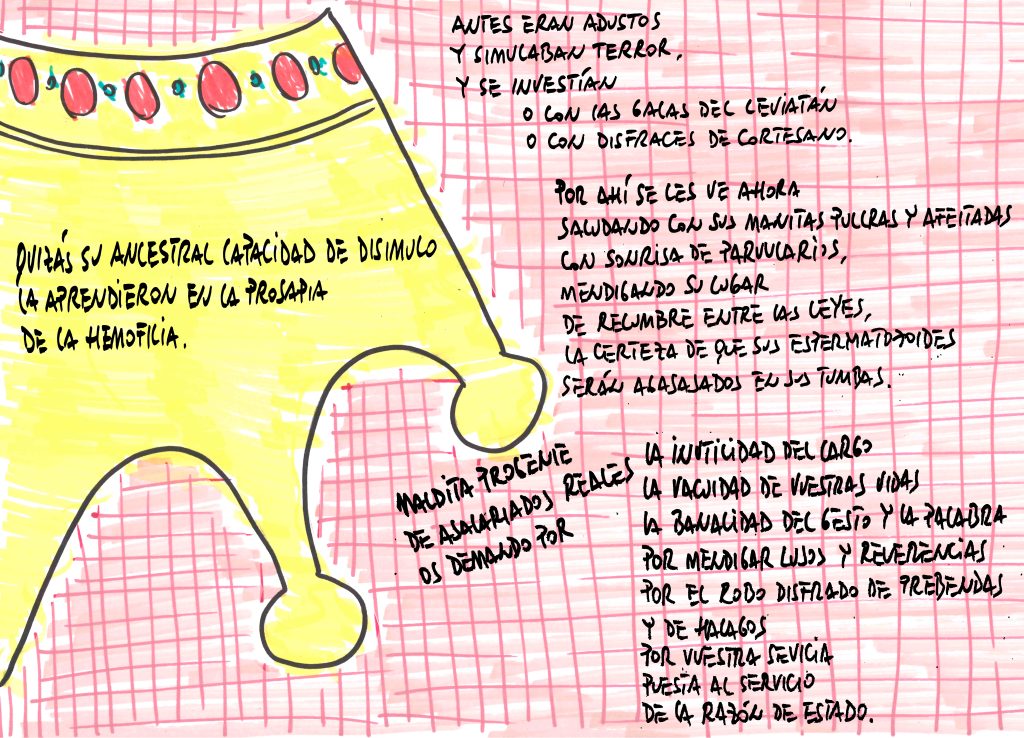 ANTES ERAN ADUSTOS
Y SIMULABAN TERROR,
Y SE INVESTÍAN
O CON LAS GALAS DEL LEVIATÁN
O CON DISFRACES DE CORTESANO.
POR AHÍ SE LES VE AHORA
SALUDANDO CON SUS MANITAS PULCRAS Y AFEITADAS
CON SONRISA DE PARVULARIOS,
MENDIGANDO SU LUGAR
DE RELUMBRE ENTRE LAS LEYES,
LA CERTEZA DE QUE SUS ESPERMATOZOIDES
SERÁN AGASAJADOS EN SUS TUMBAS.
QUIZÁS SU ANCESTRAL CAPACIDAD DE DISIMULO
LA APRENDIERON EN LA PROSAPIA
DE LA HEMOFILIA.
MALDITA PROGENIE
DE ASALARIADOS REALES
OS DEMANDO POR
LA INUTILIDAD DEL CARGO
LA VACUIDAD DE VUESTRAS VIDAS
LA BANALIDAD DEL GESTO Y LA PALABRA
POR MENDIGAR LUJOS Y REVERENCIAS
POR EL ROBO DISFRADO DE PREBENDAS
Y DE HALAGOS
POR VUESTRA SEVICIA
PUESTA AL SERVICIO
DE LA RAZÓN DE ESTADO.